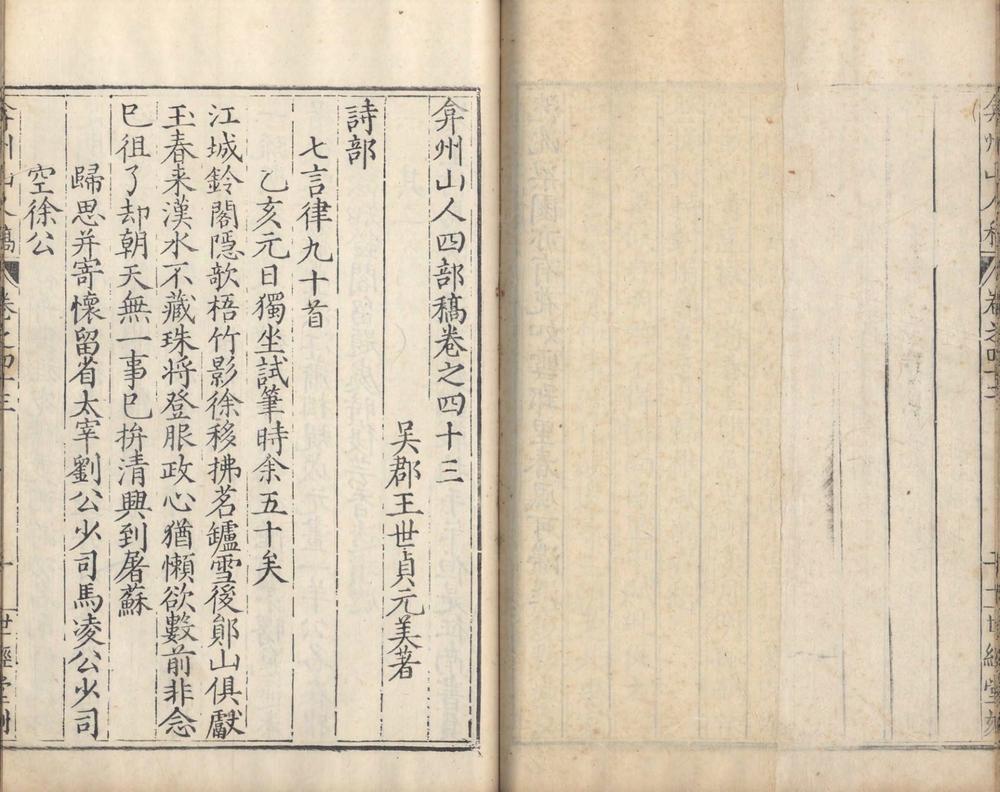 弇州山人四部稿卷之四十三
吳郡王世貞元美著
詩部
七言律九十首
乙亥元日獨坐試筆時余五十矣
江城鈴閣隱歌梧竹影徐移拂茗鑪雪後鄖山俱獻
玉春来漢水不藏珠将登服政心猶懶欲數前非念
已徂了却朝天無一事已拚清興到屠蘇
歸思并寄懷留省太宰劉公少司馬凌公少司
空徐公
弇州山人稿
卷之四十三
世經堂刻